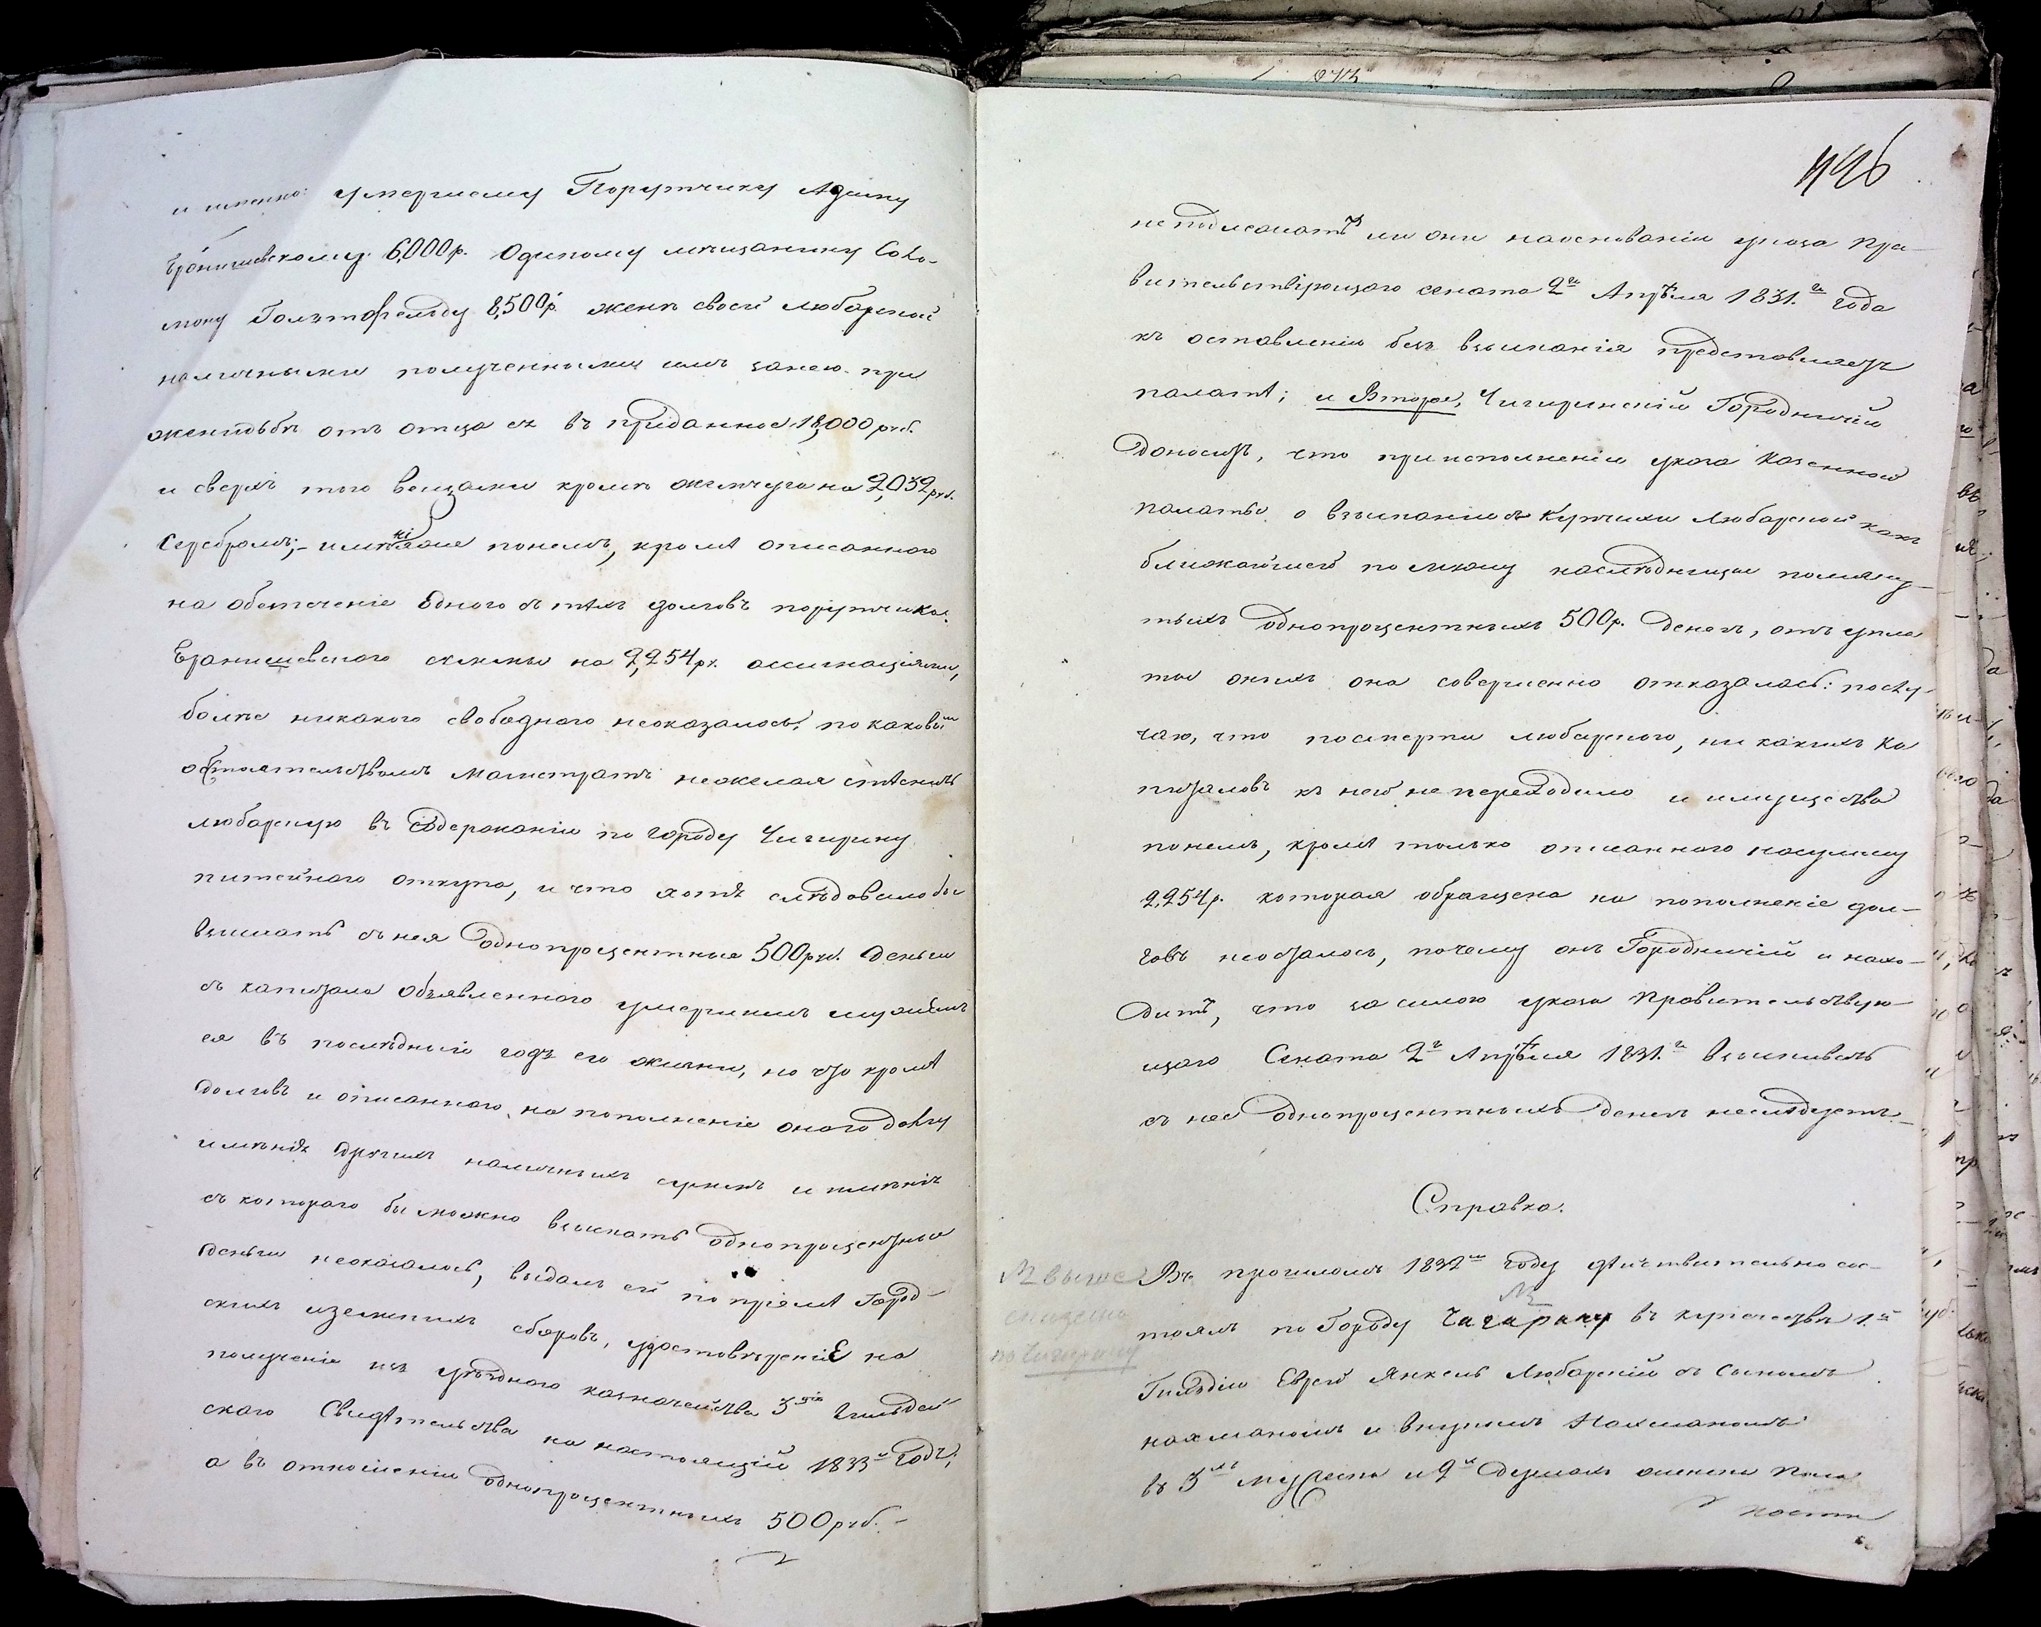 и имянно: умершему Порутчику Адаму
6,000 р. Одному мѣщанину Соло-
мону 8,500 р. женѣ своей Любарской
наличными полученными имъ занею при
женидьбѣ отъ отца ея въ приданное 18,000 руб.
и сверхъ того вещами кромѣ жемчуга на 2,032 руб.
Серебромъ;- имѣнія же понемъ, кромѣ описанного
на обезпеченіе одного съ тѣхъ долговъ порутчика
на 2,254 ру. ассигнаціями,
болѣе никакого свободнаго неоказалось; по каковымъ
обстоятельствамъ Магистратъ нежелая стѣснить
Любарскую въ содержаніи по городу Чигирину
питейного откупа, и что хотя слѣдовало бы
взыскать съ нея однопроцентные 500 руб. деньги
съ капитала объявленного умершимъ мужемъ
ея въ послѣдній годъ его жизни, но что кромѣ
долговъ и описанного на пополненіе оного долгу
имѣнія другихъ наличныхъ суммъ и имѣнія
съ котораго бы можно взыскать однопроцентные
деньги неоказалось, выдалъ ей по пріемѣ Город-
скихъ и земскихъ сборовъ, удостовѣреніе на
полученіе изъ уѣзднаго казначейства 3 гильдей
ского Свидѣтельства на настоящій 1833й годъ;
а въ отношеніи однопроцентныхъ 500 руб.-
1146
неподлежатъ ли они наоснованіи указа Пра-
вительствующаго сената 2го Апрѣля 1831го года
къ оставленію безъ взысканія представляетъ
палатѣ; и Второе, Чигиринскій Городничій
доноситъ, что при исполненіи указа Казенной
палаты о взысканіи съ Купчихи Любарской какъ
ближайшей по мужу наслѣдницы помяну-
тыхъ однопроцентныхъ 500 р. денегъ, отъ упла
ты оныхъ она совершенно отказалась: послу-
чаю, что посмерти Любарского, ни какихъ ка
питаловъ къ ней не переходило и имущества
понемъ, кромѣ только описанного насумму
2,254 р. которая обращена на пополненіе дол-
говъ неосталось, почему онъ Городничій и нахо-
дитъ, что за силою указа Правительствую-
щаго Сената 2го Апрѣля 1831го взыскивать
съ нее однопроцентныхъ денегъ неслѣдуетъ.-
Справка.
№ выше
по Чигирину
Въ прошломъ 1832мъ году дѣйствительно сос-
№
тоялъ по Городу Чигирину въ купечествѣ 1й
Гильдіи Еврей Янкель Любарскій съ Сыномъ
Нахманомъ и внукомъ Нахманомъ
въ 3хъ мужеска и 2хъ душахъ женска пола
ности